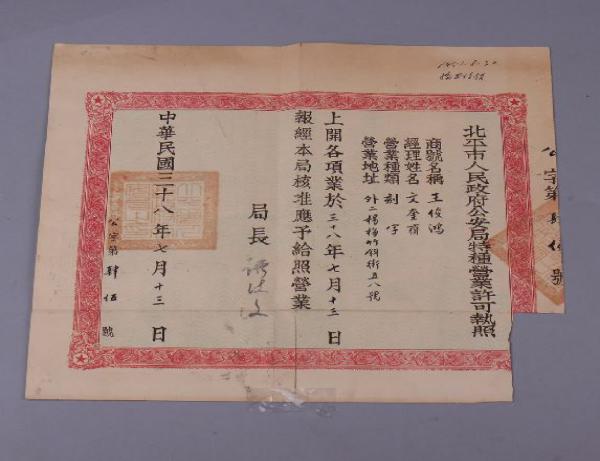 北平市人民政府公安局特種營業許可執照
商號名稱 王俊鴻
經理姓名 文奎
營業種類 刻字
營業地址 外二楊梅竹斜街五八號
上開各項業於三十八年七月十三日
報經本局核准應予給照營業
局長
中華民國三十八年七月十三日
公字第肆伍號
公字第肆伍號